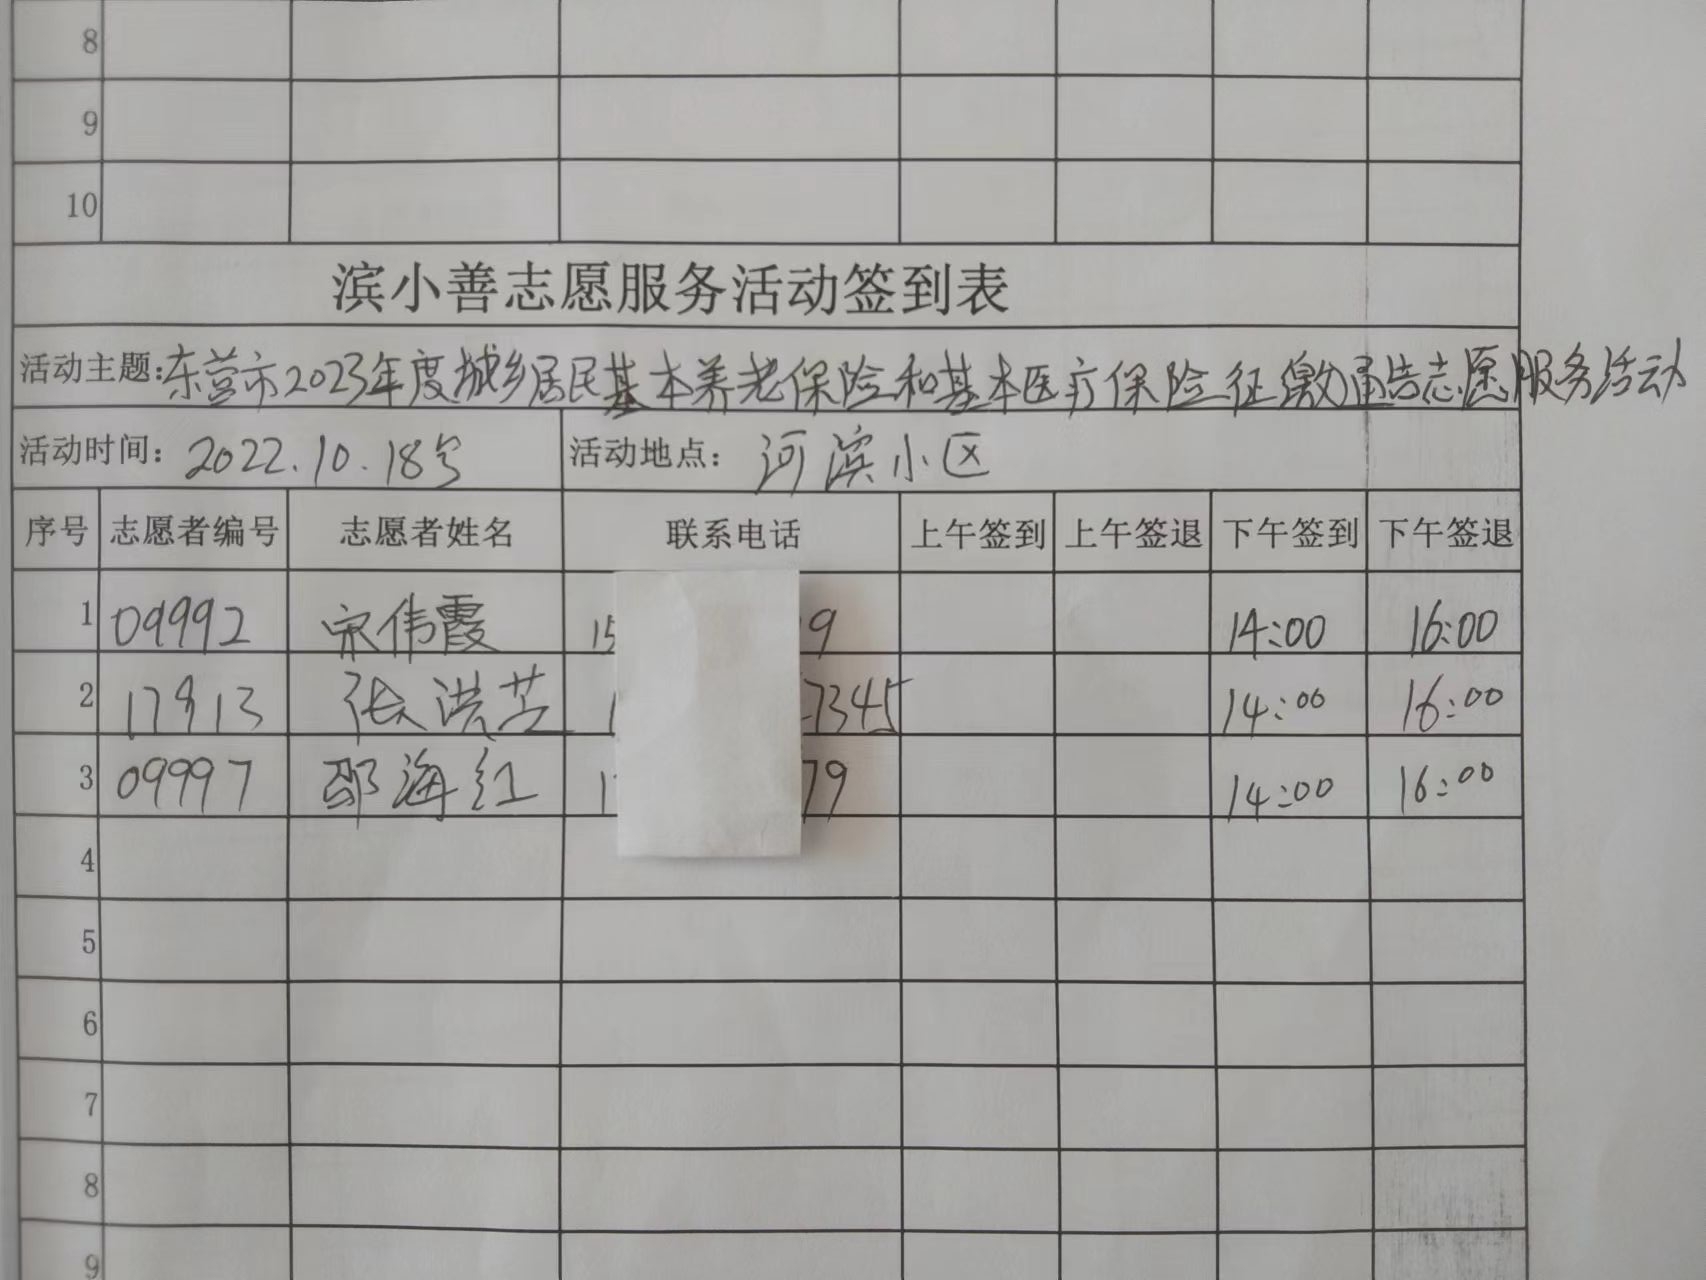 8
9
10
滨小善志愿服务活动签到表
活动主题:东营市2023年度城乡居民基本养老保险和基本医疗保险征缴通告志愿服务活动
活动时间: 2022.10.18号 活动地点: 河滨小区
序号 志愿者编号 志愿者姓名 联系电话 上午签到 上午签退 下午签到 下午签退
1 09992 宋伟霞 15 9 14:00 16:00
2 17913 张洪芝 1 7345 14:00 16:00
3 09997 邵海红 1 79 14:00 16:00
4
5
6
7
8
9